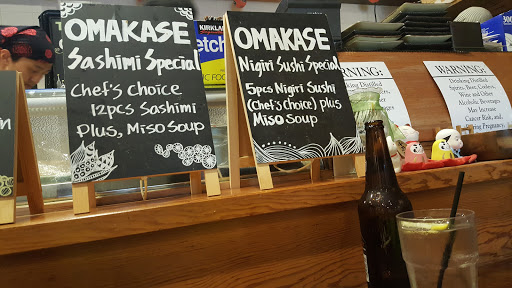 OMAKASE
Sashimi Special
Chef's choice
12pcs Sashimi
Plus, Miso Soup
KIRKLAND
OMAKASE
Nigiri Sushi Special
5pcs Nigiri Sushi
(Chef's Choice) plus
Miso Soup
WARNING:
Drinking Distilled
Spirits, Beer, Coolers,
Wine and Other
Alcoholic Beverages
May Increase
Cancer Risk, and,
During Pregnancy,